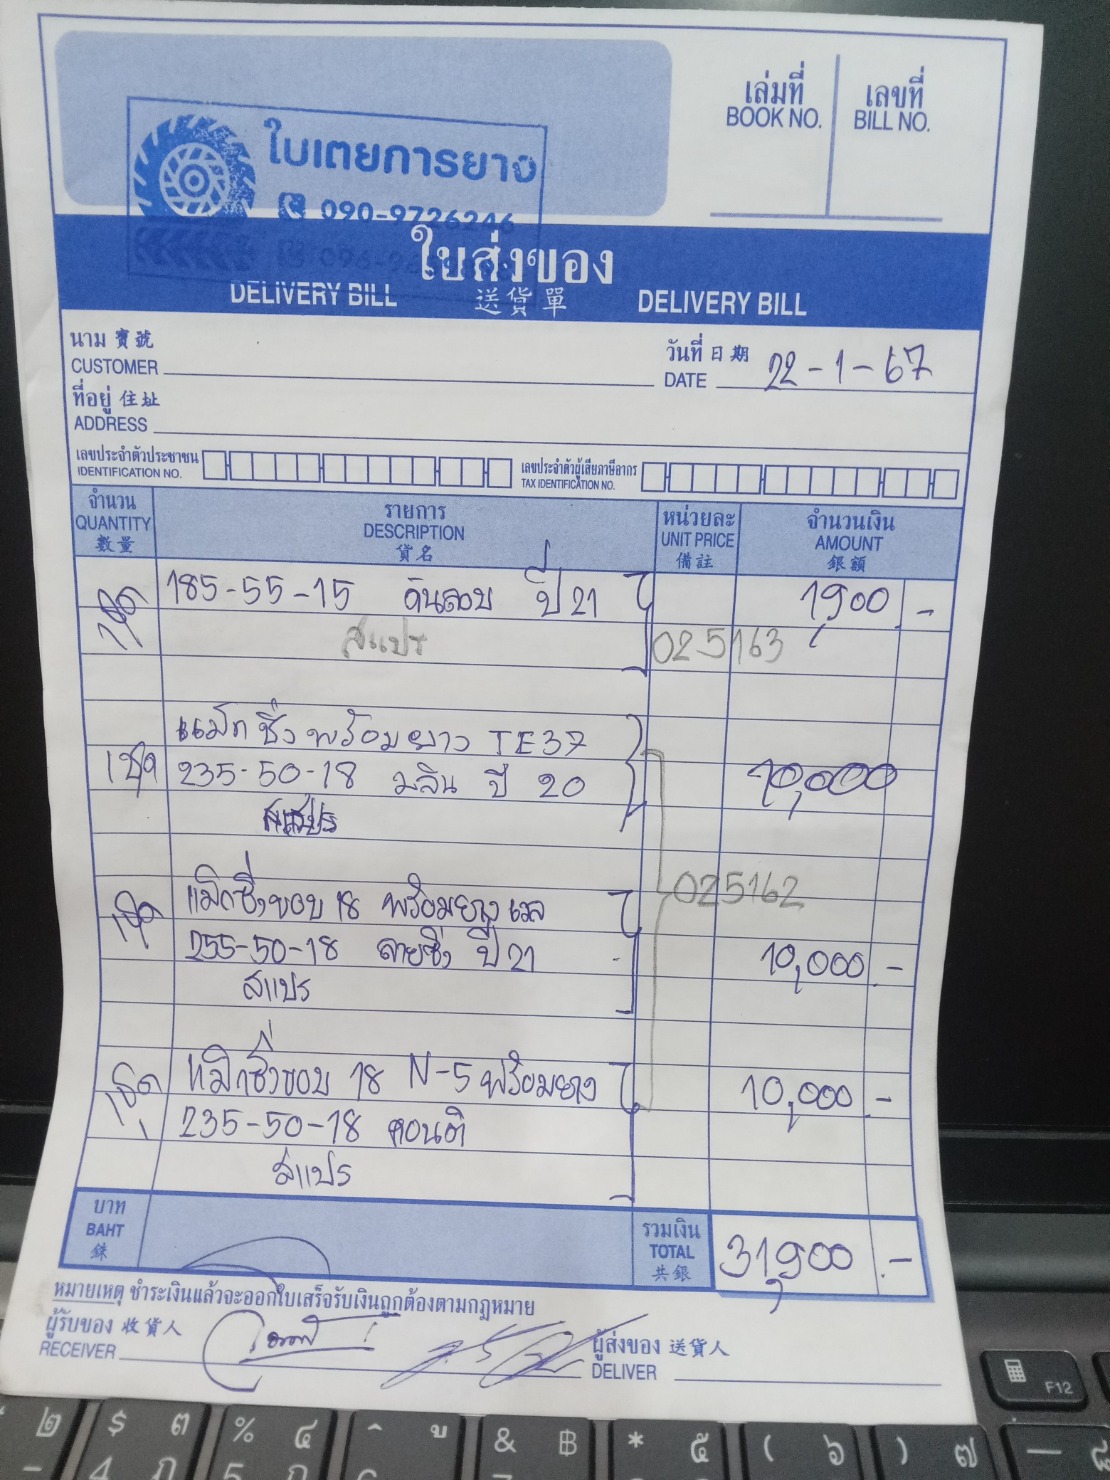 ใบเตยการยาง
090-9726246
ใบส่งของ
DELIVERY BILL 送貨單 DELIVERY BILL
เล่มที่ เลขที่
BOOK NO. BILL NO.
นาม 寶號
CUSTOMER
วันที่ 日期
DATE 22-1-67
ที่อยู่ 住址
ADDRESS
เลขประจำตัวประชาชน
IDENTIFICATION NO.
เลขประจำตัวผู้เสียภาษีอากร
TAX IDENTIFICATION NO.
จำนวน รายการ หน่วยละ จำนวนเงิน
QUANTITY DESCRIPTION UNIT PRICE AMOUNT
數量 貨名 備註 銀額
185-55-15 ดันลอป ปี 21 1,900 -
สแปร 025163
แม็กซิ่งพร้อมยาง TE37
1ชุด 235-50-18 มลิน ปี 20 10,000
สแปร
1ชุด แม็กซิ่งขอบ 18 พร้อมยาง เวล 025162
255-50-18 ลายซิ่ง ปี 21 10,000 -
สแปร
1ชุด แม็กซิ่งขอบ 18 N-5 พร้อมยาง 10,000 -
235-50-18 คอนติ
สแปร
บาท
BAHT
銖
รวมเงิน
TOTAL 31,900 -
共銀
หมายเหตุ ชำระเงินแล้วจะออกใบเสร็จรับเงินถูกต้องตามกฎหมาย
ผู้รับของ 收貨人
RECEIVER
ผู้ส่งของ 送貨人
DELIVER
F12